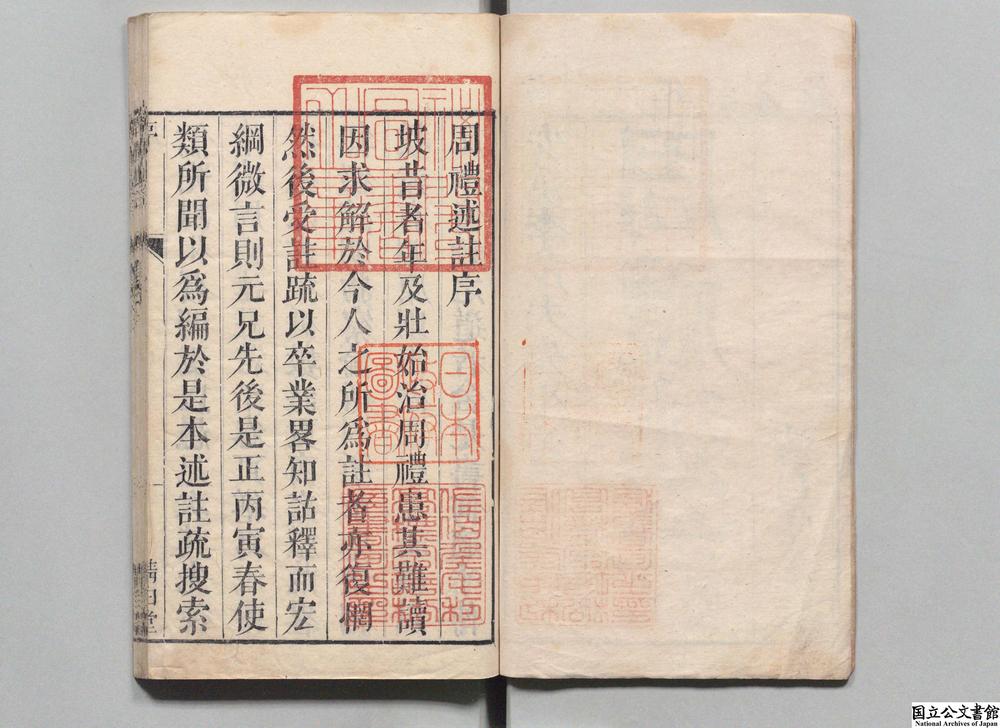 周禮述註序
坡昔者年及壯始治周禮患其難讀
因求解於今人之所爲註者亦復惘
然後受註疏以卒業畧知詁釋而宏
綱微言則元兄先後是正丙寅春使
類所聞以爲編於是本述註疏搜索
日本
政府
圖書
国立公文書館
National Archives of Japan